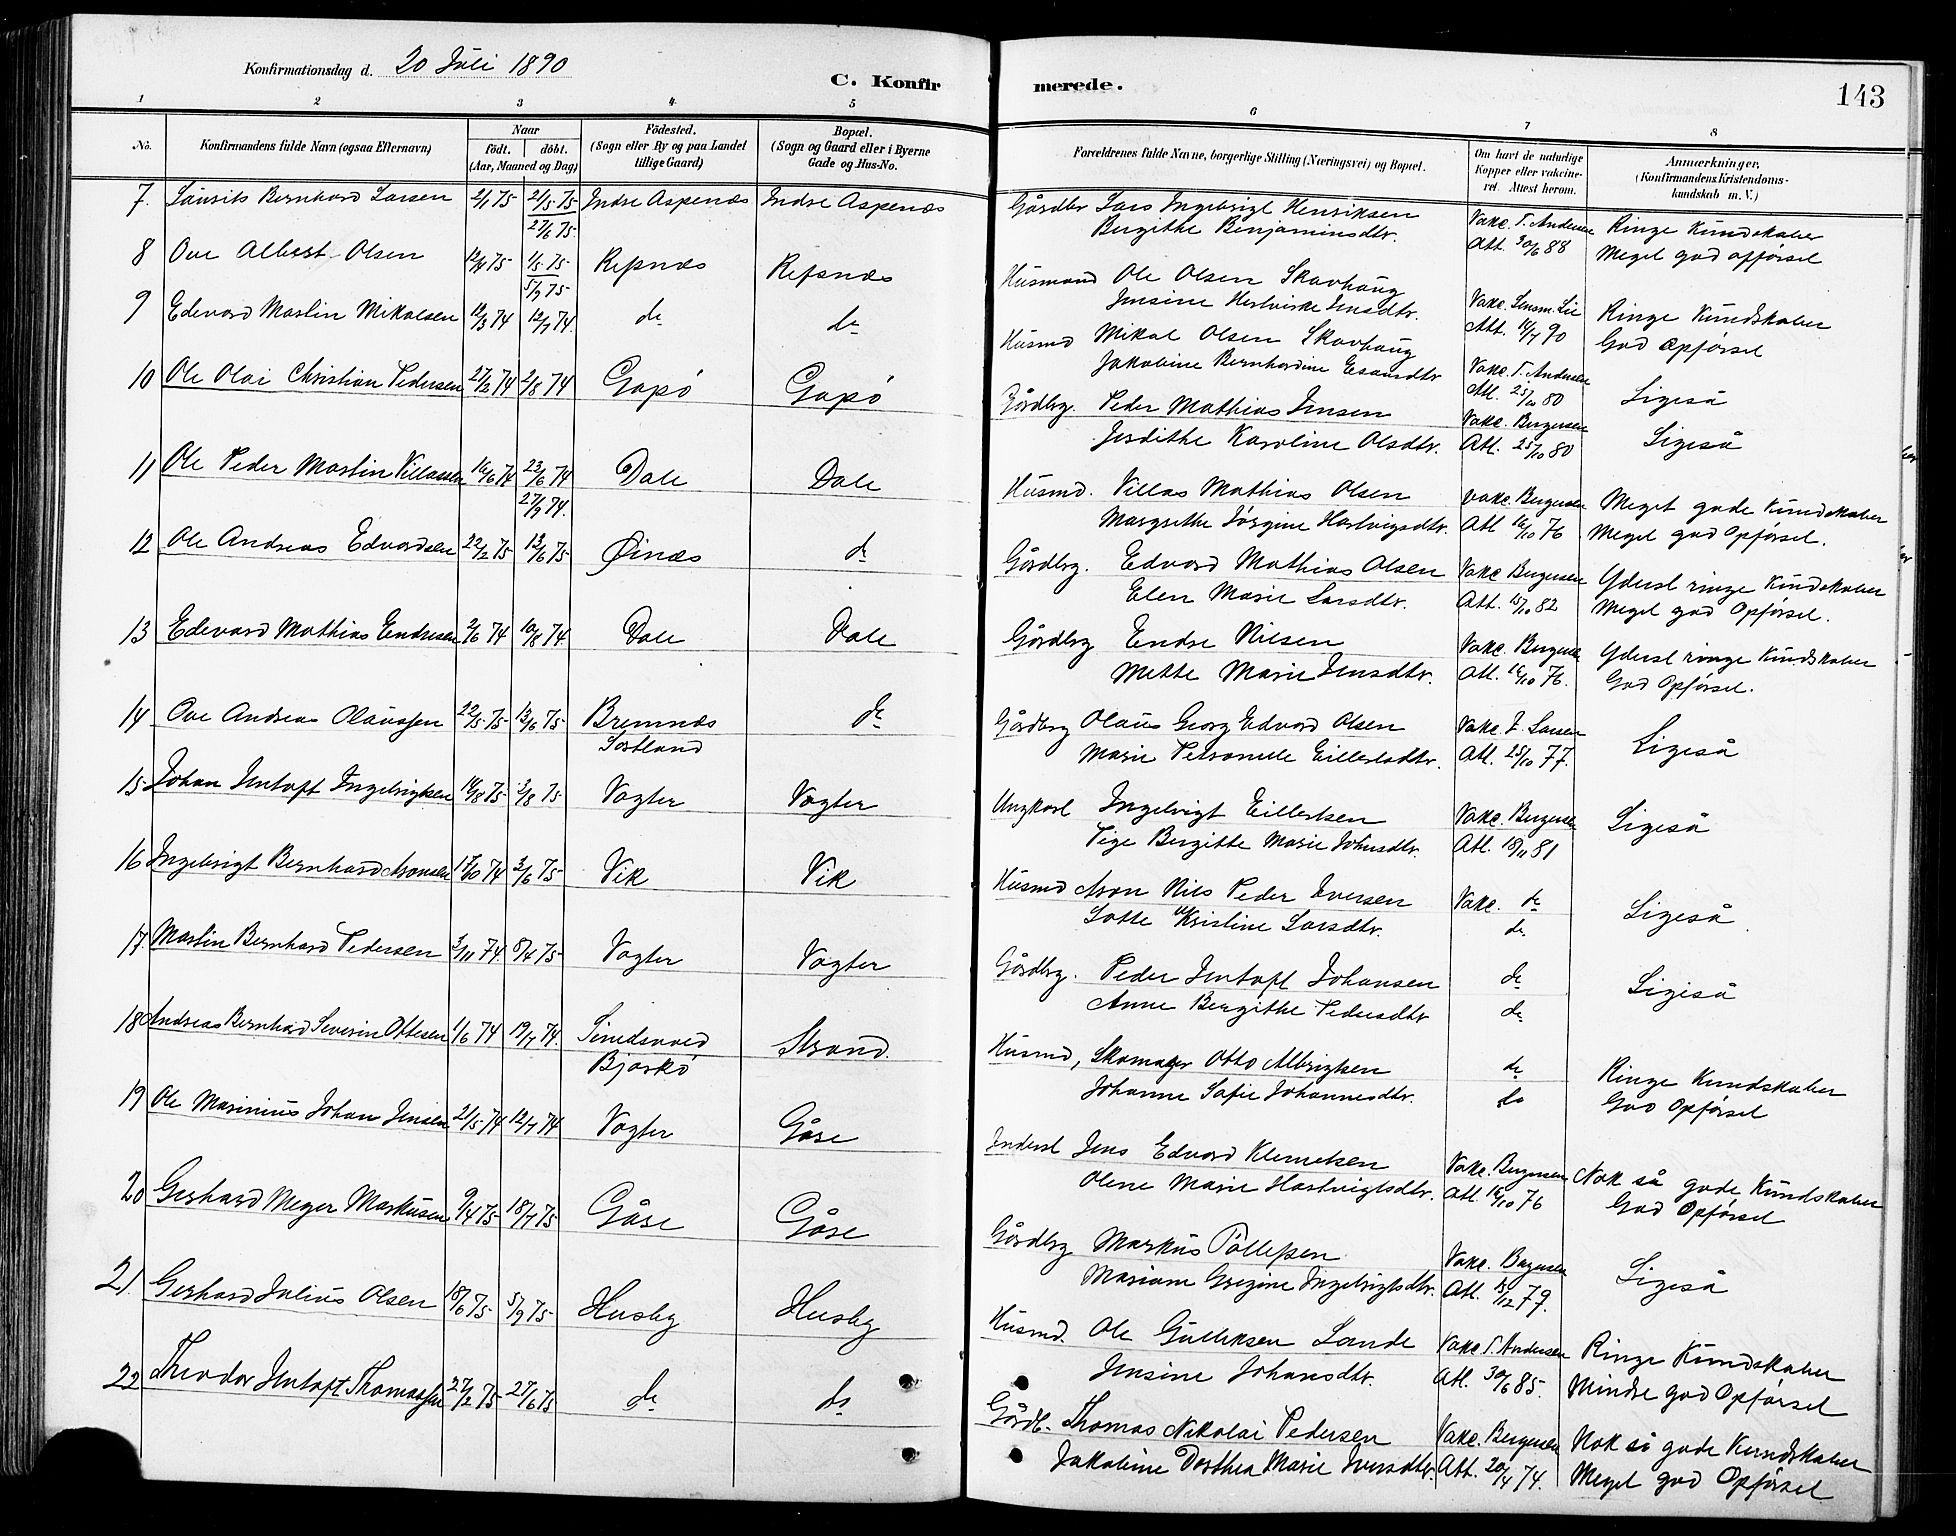 Konfirmationsdag d. 20 Juli 1890
C. Konfirmerede.
143
1 2 3 4 5 6 7 8
No.
Konfirmandens fulde Navn (ogsaa Efternavn)
Naar
födt. döbt.
(Aar, Maaned og Dag)
Födested.
(Sogn eller By og paa Landet
tillige Gaard)
Bopæl.
(Sogn og Gaard eller i Byerne
Gade og Hus-No.
Forældrenes fulde Navne, borgerlige Stilling (Næringsvei) og Bopæl.
Om havt de naturlige
Kopper eller vakcine-
ret. Attest herom.
Anmærkninger.
(Konfirmandens Kristendoms-
kundskab m. V.)
7. Laurits Bernhard Larsen 2/1 75 2/5 75 Indre Aspenæs Indre Aspenæs Gårdbr Lars Ingebrigt Henriksen Vakc. T. Andersen Ringe Kundskaber
27/6 75. Birgithe Benjaminsdtr. Att. 30/6 88 Meget god opførsel
8 Ove Albert Olsen 12/4 75 1/5 75 Refsnæs Refsnæs Husmand Ole Olsen Skavhaug Vakc. Lensm. Lie Ringe Kundskaber
5/9 75 Jensine Hartvikke Jensdtr. Att. 12/7 90 God Opførsel
9 Edevard Martin Mikalsen 12/3 74 12/7 74. do do Husmd Mikal Olsen Skavhaug Vakc. T. Andersen Ligeså
Jakobine Bernhardine Esaiasdtr Att. 25/10 80
10 Ole Olai Christian Pedersen 27/2 74 2/8 74 Gapø Gapø Gårdbrg. Peder Mathias Jensen Vakc. Bergersen Ligeså
Jerdithe Karoline Olsdtr. Att. 25/10 80
11 Ole Peder Martin Villassen 16/6 74 23/6 74 Dale Dale Husmd. Villas Mathias Olsen Vakc. Bergersen Meget gode Kundskaber
27/9 74. Margrethe Jørgine Hartvigsdtr. Att 16/10 76 Meget god Opførsel.
12 Ole Andreas Edvardsen 22/2 75 13/6 75 Øinæs do Gårdbrg. Edvard Mathias Olsen Vakc Bergersen Yderst ringe Kundskaber
Elen Marie Larsdtr. Att. 15/10 82 Meget god Opførsel.
13 Edevard Mathias Endresen 2/6 74 10/8 74. Dale Dale Gårdbrg Endre Nilsen Vakc. Bergersen Yderst ringe Kundskaber
Mette Marie Jensdtr. Att. 16/10 76. God Opførsel.
14 Ove Andreas Olaussen 22/5 75 13/6 75 Bremnæs do Gårdbrg Olaus Georg Edvard Olsen Vakc. J. Larsen Ligeså
Sortland Marie Petronelle Eillertsdtr. Att. 25/10 77.
15 Johan Jentoft Ingebrigtsen 14/8 75 2/8 75 Vogter Vogter Ungkarl Ingebrigt Eillertsen Vakc. Bergersen Ligeså
Pige Bergitte Marie Johnsdtr. Att. 18/11 81
16 Ingebrigt Bernhard Aronsen 17/10 74 3/6 75 Vik Vik Husmd Aron Nils Peder Iversen Vakc. do Ligeså
Lotte Kristine Larsdtr. do
17. Martin Bernhard Pedersen 3/11 74 8/4 75 Vogter Vogter Gårdbrg. Peder Jentoft Johansen do Ligeså
Anne Bergithe Pedersdtr do
18 Andreas Bernhard Severin Ottesen 1/6 74 19/7 74. Strand. Husmd, Skomager Otto Albrigtsen do Ringe Kundskaber
Bjarkö Johanne Safie Johannesdtr. do God Opførsel
19 Ole Marinius Johan Jensen 21/5 74 12/7 74 Vogter Gåse Inderst Jens Edvard Klemetsen Vakc. Bergersen Nok så gode Kundskaber
Olene Marie Hartvigtsdtr. Att. 16/10 76 God Opførsel
20 Gerhard Meyer Markusen 9/4 75 18/7 75 Gåse Gåse Gårdbrg Markus Pollesen Vakc. Bergersen Ligeså
Mariane Gregine Ingebrigtsdtr. Att. 15/12 79.
21. Gerhard Julius Olsen 18/6 75 5/9 75 Husby Husby Husmd. Ole Gulliksen Sande Vakc T. Andersen Ringe Kundskaber
Jensine Johansdtr. Att. 30/6 85. Mindre god Opførsel
22 Theodor Jentoft Thomassen 27/2 75 27/6 75 do do Gårdb. Thomas Nikolai Pedersen Vakc. Bergersen Nok så gode Kundskaber
Jakobine Dorthea Marie Iversdtr. Att. 20/4 74. Meget god Opførsel